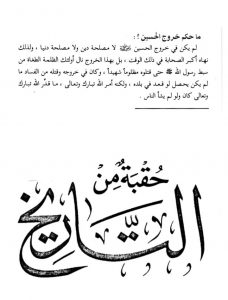 ما حكم خروج الحسين ؟ :
لم يكن في خروج الحسين ﷺ لا مصلحة دين ولا مصلحة دنيا ، ولذلك
نهاه أكابر الصحابة في ذلك الوقت ، بل بهذا الخروج نال أولئك الظلمة الطغاة من
سبط رسول الله ﷺ حتى قتلوه مظلوماً شهيداً ، وكان في خروجه وقتله من الفساد ما
لم يكن يحصل لو قعد في بلده ، ولكنه أمر الله تبارك وتعالى ، ما قدَّر الله تبارك
وتعالى كان ولو لم يشأ الناس .
حُقْبَةٌ مِنَ
التَّارِيخِ